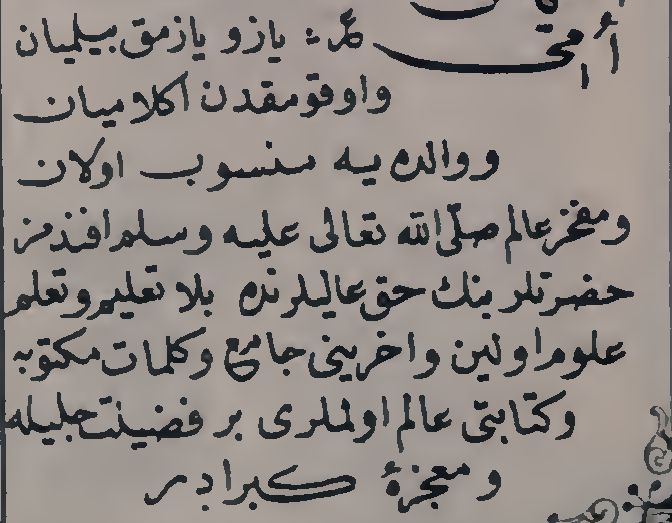 أمّي عر: یازو یازمق بیلمیان
واوقومقدن اکلامیان
ووالده یه منسوب اولان
ومفخر عالم صلّی الله تعالی علیه وسلم افندمز
حضرتلرینك حق عالیلرنده بلا تعلیم وتعلم
علوم اولین واخرینی جامع وکلمات مکتوبه
وکتابتی عالم اولملری بر فضیلت جلیله
ومعجزۀ کبرادر